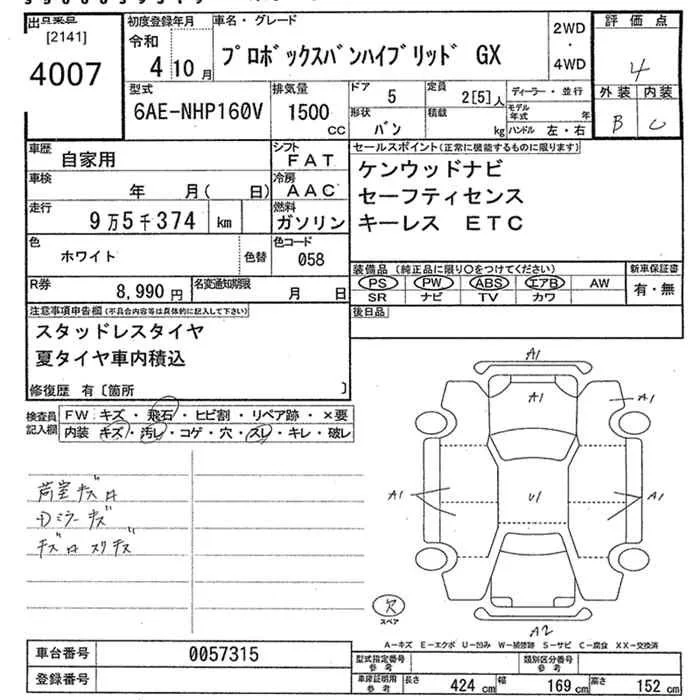 出品票
[2141]
4007
初度登録年月
令和
4年 10月
車名・グレード
プロボックスバンハイブリッド GX
2WD
・
4WD
評価点
4
外装 内装
B C
型式
6AE-NHP160V
排気量
1500
cc
ドア
5
形状
バン
定員
2[5]人
積載
kg
ディーラー・並行
モデル年式 年
ハンドル 左・右
車歴
自家用
シフト
FAT
車検
年 月( 日)
冷房
AAC
走行
9万5千374 km
燃料
ガソリン
色
ホワイト
色替
色コード
058
R券
8,990 円
名変通知期限
月 日
セールスポイント(正常に機能するものに限ります)
ケンウッドナビ
セーフティセンス
キーレス ETC
装備品(純正品に限り○をつけてください)
PS PW ABS エアB AW
SR ナビ TV カワ
新車保証書
有・無
後日品
注意事項申告欄(不具合内容等は具体的に記入して下さい)
スタッドレスタイヤ
夏タイヤ車内積込
修復歴 有〔箇所 〕
検査員
記入欄
FW キズ・飛石・ヒビ割・リペア跡・×要
内装 キズ・汚レ・コゲ・穴・スレ・キレ・破レ
荷室キズ
ミラーキズ
A1
A1
A1
A1
U1
A1
A2
欠
スペア
A-キズ E-エクボ U-凹み W-補修跡 S-サビ C-腐食 XX-交換済
車台番号
0057315
登録番号
型式指定番号
参考
類別区分番号
参考
車庫証明用
参考
長さ 424 cm 幅 169 cm 高さ 152 cm